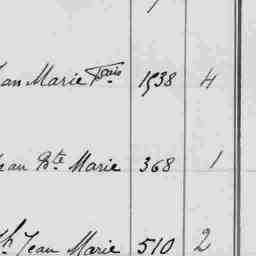 an Marie Fçois 1938 4
ean Bte Marie 368 1
h Jean Marie 510 2